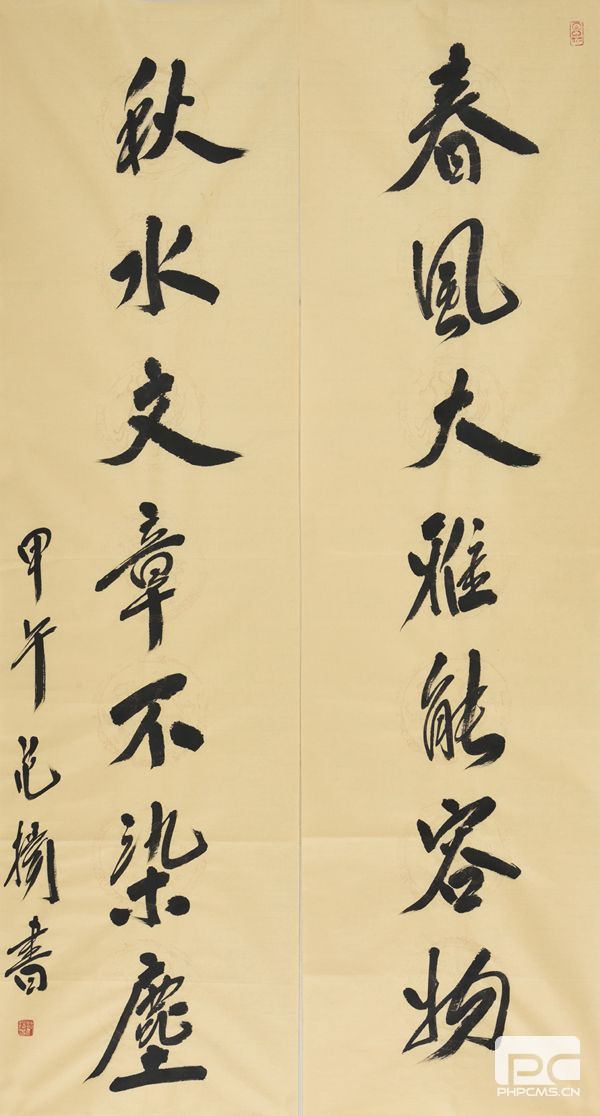 春風大雅能容物
秋水文章不染塵
甲午范橋書
PC
PHPCMS.CN